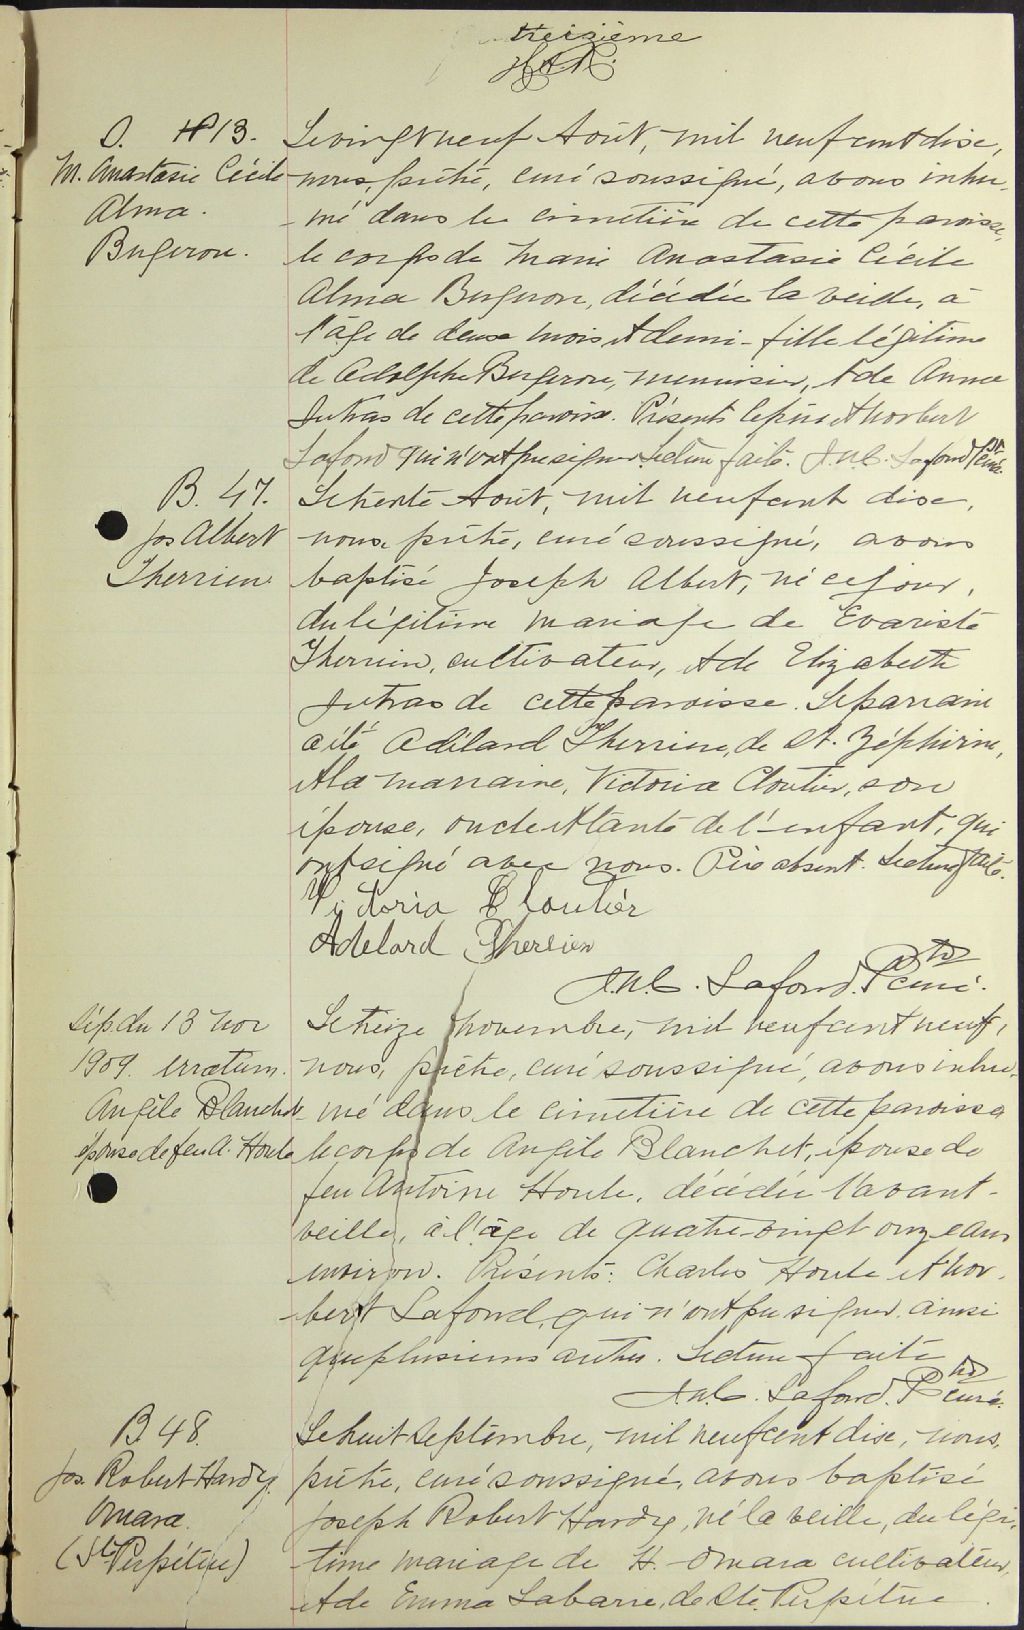 treizième
S. 13.
M. Anastasie Cécile
Alma.
Bergeron.
Le vingt neuf Août, mil neuf cent dix,
nous, prêtre, curé soussigné, avons inhu-
-mé dans le cimetière de cette paroisse,
le corps de Marie Anastasie Cécile
Alma Bergeron, décédée la veille, à
l'âge de deux mois et demi - fille légitime
de Adolphe Bergeron, menuisier, et de Anna
Jutras de cette paroisse. Présents le père et Norbert
Lafond qui n'ont pu signer. Lecture faite. J.N.C. Lafond Ptre curé.
B. 47.
Jos Albert
Therrien.
Le trente Août, mil neuf cent dix,
nous, prêtre, curé soussigné, avons
baptisé Joseph Albert, né ce jour,
du légitime mariage de Evariste
Therrien, cultivateur, et de Elizabeth
Jutras de cette paroisse. Le parrain
a été Adélard Therrien, de St. Zéphirin,
et la marraine, Victoria Cloutier, son
épouse, oncle et tante de l'enfant, qui
ont signé avec nous. Père absent. Lecture faite.
Victoria Cloutier
Adelard Therrien
J.N.C. Lafond. Ptre curé.
Sép. du 13 Nov
1909. erratum.
Angèle Blanchet
épouse de feu A. Houle
Le treize novembre, mil neuf cent neuf,
nous, prêtre, curé soussigné, avons inhu-
-mé dans le cimetière de cette paroisse
le corps de Angèle Blanchet, épouse de
feu Antoine Houle, décédée l'avant-
veille, à l'âge de quatre-vingt onze ans
environ. Présents: Charles Houle et Nor-
-bert Lafond, qui n'ont pu signer ainsi
que plusieurs autres. Lecture faite
J.N.C. Lafond. Ptre curé.
B 48.
Jos. Robert Hardy
Omara.
(Ste Perpétue)
Le huit Septembre, mil neuf cent dix, nous,
prêtre, curé soussigné, avons baptisé
Joseph Robert Hardy, né la veille, du légi-
-time mariage de H. Omara cultivateur,
et de Emma Labarre, de Ste. Perpétue.